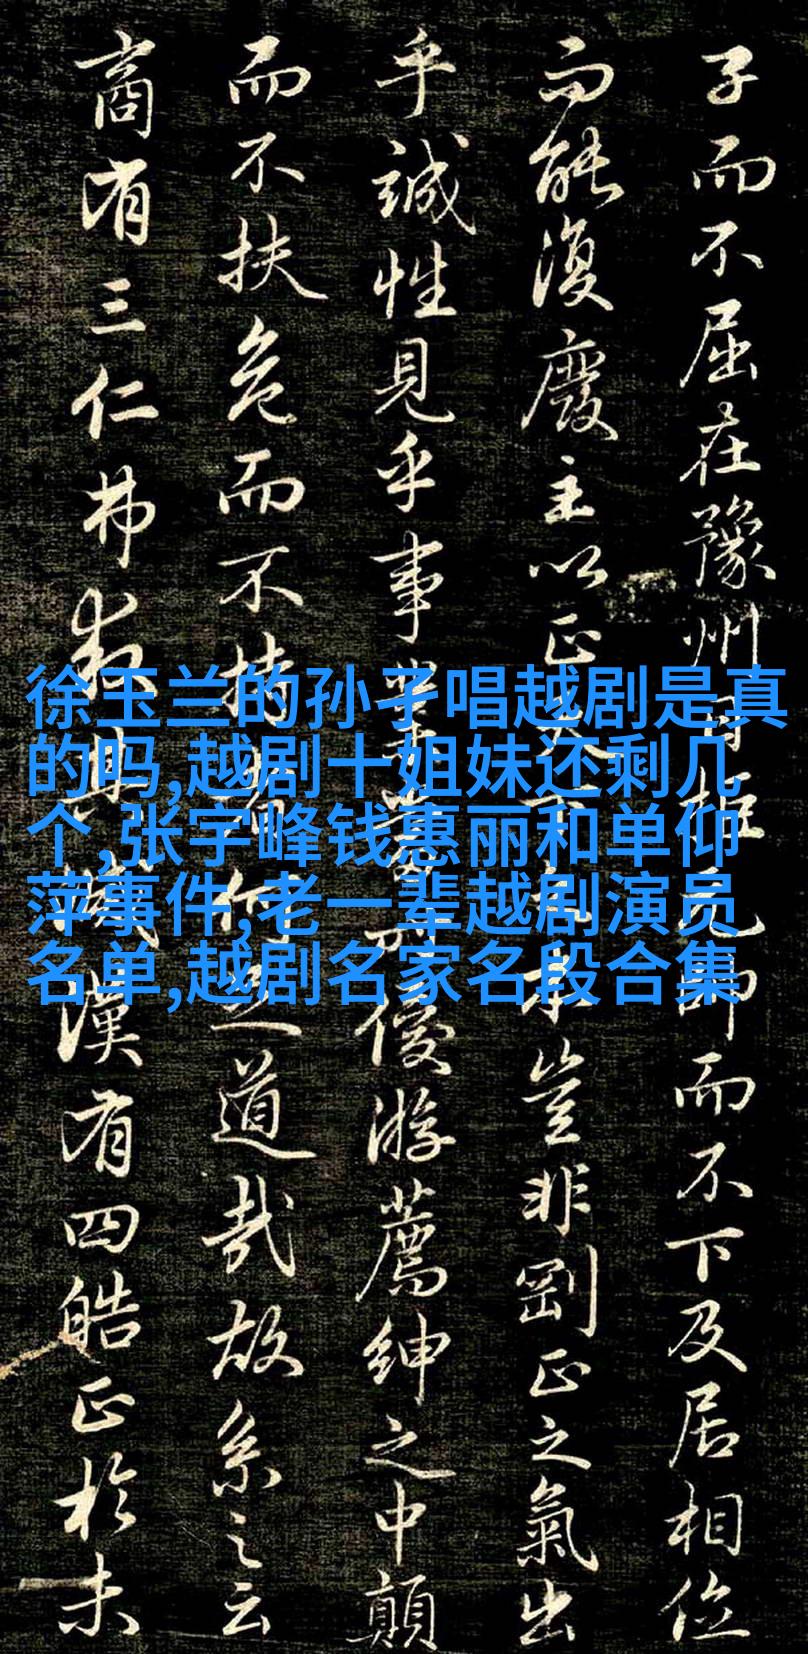 子而不屈在豫州日拒元帥而不下及居相位
而能復廢主以正天下之本豈非剛正之氣出
乎誠性見乎事業當時優游薦紳之中顛
而不扶危而不持者何之道哉故系之云
商有三仁弗救其滅漢有四皓正於未
徐玉兰的孙子唱越剧是真
的吗,越剧十姐妹还剩几
个,张宇峰钱惠丽和单仰
萍事件,老一辈越剧演员
名单,越剧名家名段合集